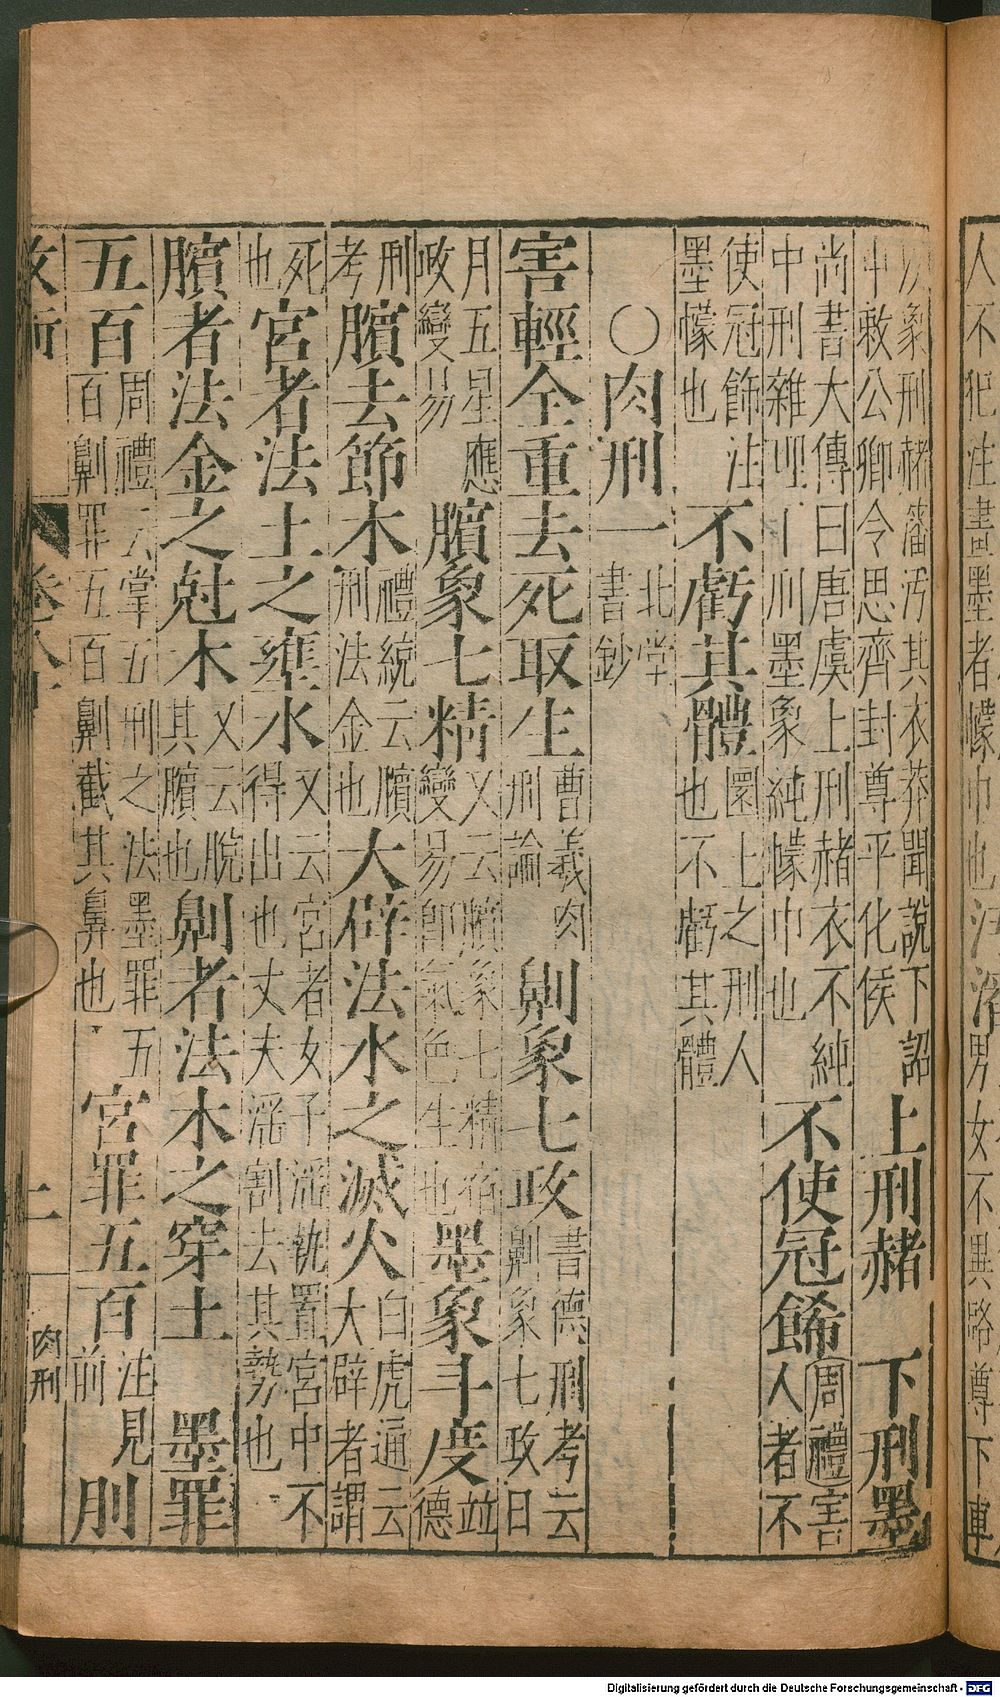 人不犯注畫墨者幪巾也男女不異路尊下車
象刑赭潘汚其衣莽聞說下詔
中敕公卿令思齊封尊平化侯
上刑赭　下刑墨
尚書大傳曰唐虞上刑赭衣不純
中刑雜　刑墨象純幪巾也
不使冠餙
周禮害
人者不
使冠飾注
墨幪也
不虧其體
圜土之刑人
也不虧其體
○肉刑一
北堂
書鈔
害輕全重去死取生
曹羲肉
刑論
劓象七政
書德刑考云
劓象七政日
月五星應
政變易
臏象七精
又云臏象七精宿
變易即氣色生也
墨象斗度
並
德
刑
考
臏去節木
禮統云臏
刑法金也
大辟法水之滅火
白虎通云
大辟者謂
死
也
宮者法土之壅水
又云宮者女子淫執置宮中不
得出也丈夫淫割去其勢也
臏者法金之尅木
又云脫
其臏也
劓者法木之穿土　墨罪
五百
周禮云掌五刑之法墨罪五
百劓罪五百劓截其鼻也
宮罪五百
注見
前
刖
二
肉刑
Digitalisierung gefördert durch die Deutsche Forschungsgemeinschaft - DFG